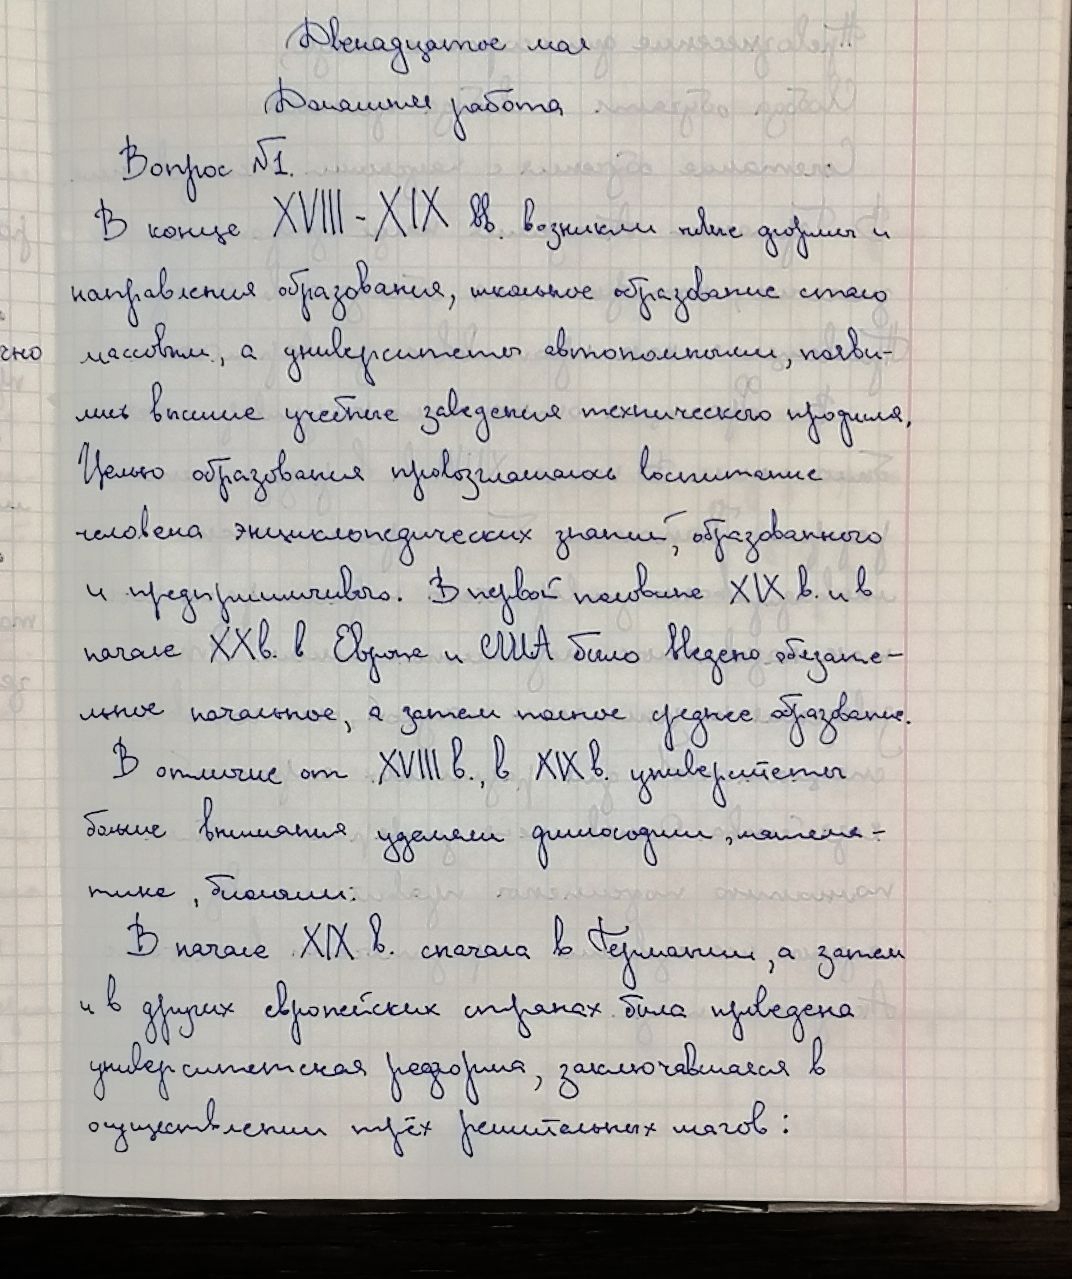 Двенадцатое мая
Домашняя работа
Вопрос №1.
В конце XVIII - XIX вв. возникли новые формы и
направления образования, школьное образование стало
массовым, а университеты автономными, появи-
лись высшие учебные заведения технического профиля.
Целью образования провозглашалось воспитание
человека энциклопедических знаний, образованного
и предприимчивого. В первой половине XIX в. и в
начале XX в. в Европе и США было введено обязате-
льное начальное, а затем полное среднее образование.
В отличие от XVIII в., в XIX в. университеты
больше внимания уделяли философии, матема-
тике, биологии.
В начале XIX в. сначала в Германии, а затем
и в других европейских странах была проведена
университетская реформа, заключавшаяся в
осуществлении трёх решительных шагов:
чно